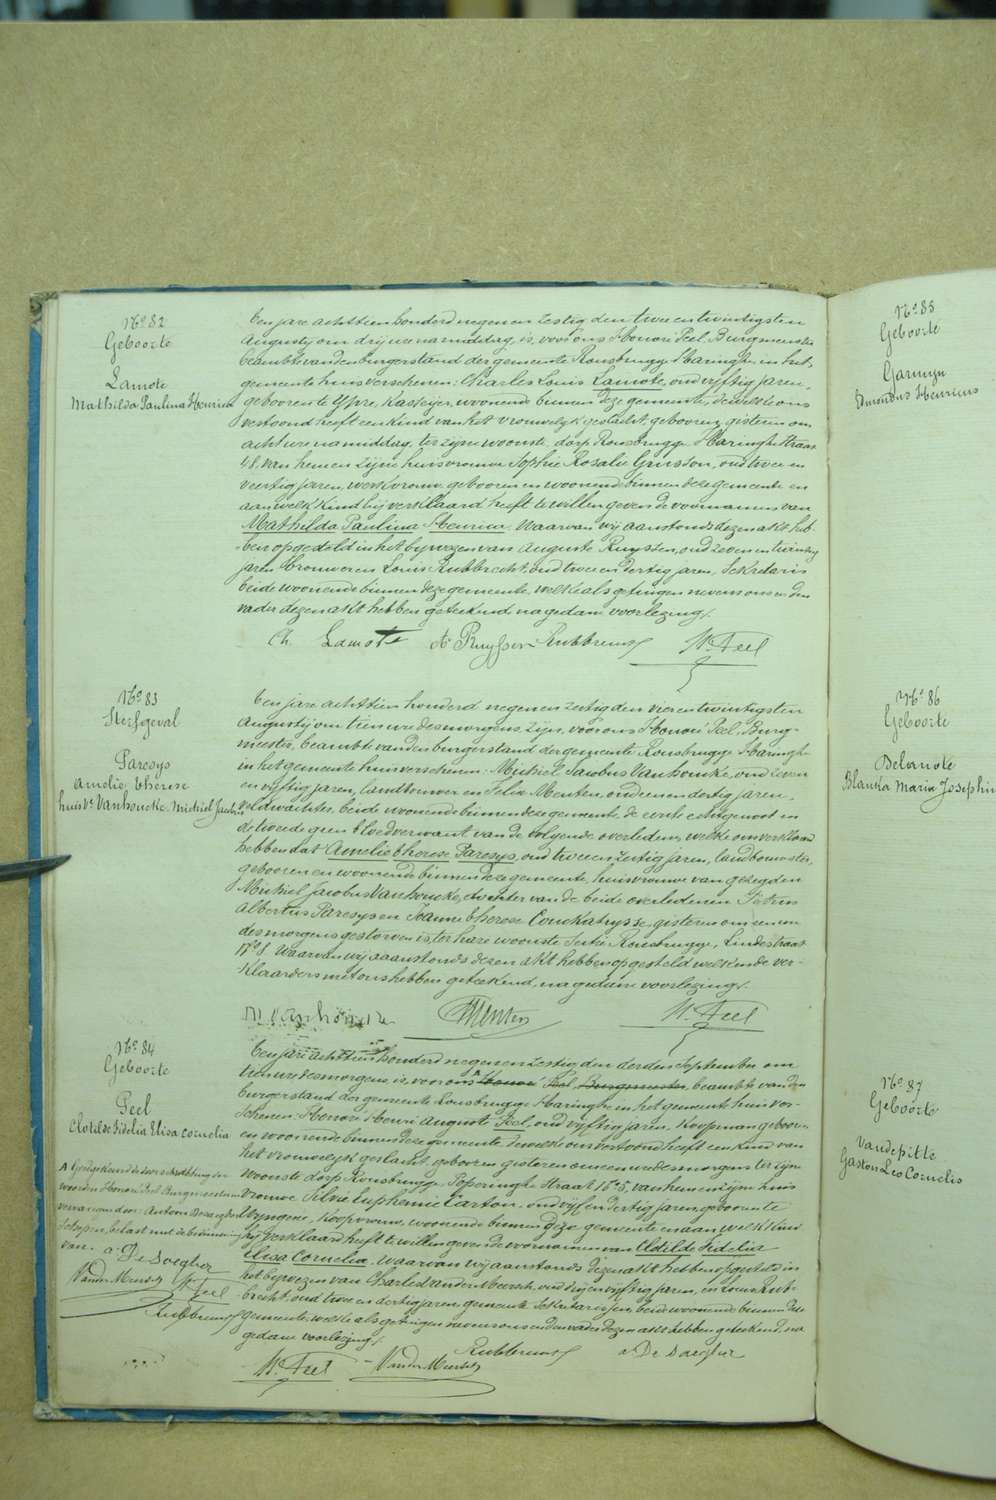 No 82
Geboorte
Lamote
Mathilda Paulina Henrica
Ten jare achttien honderd negen en zestig den twee en twintigsten
Augusty om drij ure namiddag, is, voor ons Honoré Peel, Burgmeester
beambte van den burgerstand der gemeente Rousbrugge Haringhe in het
gemeente huis verschenen: Charles Louis Lamote, oud vijftig jaren,
geboren te Ypre, Kasseijer, woonende binnen deze gemeente, dewelke ons
vertoond heeft een kind van het vrouwelijk geslacht, geboren gisteren om
acht ure namiddag, ter zijne woonste, dorp Rousbrugge Haringhe Straat
48, van hem en zijne huisvrouw Sophie Rosalie, oud twee en
veertig jaren, werkvrouw, geboren en woonende binnen deze gemeente en
aan welk kind hij verklaard heeft te willen geven de voornamen van
Mathilda Paulina Henrica. Waarvan wij aanstonds dezen akt heb-
-ben opgesteld in het bijwezen van Auguste Ruyssen, oud zeven en twintig
jaren Brouwer en Louis Rubbrecht, oud twee en dertig jaren, Sekretaris
beide woonende binnen deze gemeente, welke als getuigen nevens ons en den
vader dezen akt hebben geteekend na gedane voorlezing.
Ch. Lamote A Ruyssen Rubbrecht H. Peel
No 83
Sterfgeval
Paresys
Amelie Therese
huisve Vanhoucke, Michiel Jacobus
Ten jare achttien honderd negen en zestig den vier en twintigsten
Augusty om tien ure des morgens, zijn, voor ons Honoré Peel, Burg-
meester, beambte van den burgerstand der gemeente Rousbrugge Haringhe
in het gemeente huis verschenen: Michiel Jacobus Vanhoucke, oud zeven
en vijftig jaren, landbouwer en Felix Menten, oud een en dertig jaren,
veldwachter, beide woonende binnen deze gemeente, de eerste echtgenoot en
de tweede geen bloedverwant van de volgende overledene, welke ons verklaard
hebben dat Amelie Therese Paresys, oud twee en zestig jaren, landbouwster,
geboren en woonende binnen deze gemeente, huisvrouwe van gezegden
Michiel Jacobus Vanhoucke, dochter van de beide overledenen Petrus
Albertus Paresys en Joanne Therese Couckatrysse, gisteren om een ure
des morgens gestorven is, ter hare woonste Sectie Rousbrugge, Lindestraat
No 8. Waarvan wij aanstonds dezen akt hebben opgesteld welken de ver-
klaarders met ons hebben geteekend, na gedane voorlezing.
M Vanhoucke Menten H. Peel
No 84
Geboorte
Peel
Clotilde Fidelia Elisa Cornelia
Ten jare achttien honderd negen en zestig den derden September om
tien ure des morgens, is, voor ons Honoré Peel, Burgmeester, beambte van den
burgerstand der gemeente Rousbrugge Haringhe in het gemeente huis ver-
schenen: Honoré Henri Auguste Peel, oud vijftig jaren, Koopman geboren
en woonende binnen deze gemeente, dewelke ons vertoond heeft een kind van
het vrouwelijk geslacht, geboren gisteren om een ure des morgens ter zijne
woonste dorp Rousbrugge, Poperinghe Straat No 5, van hem en zijne huis
vrouwe Silvie Euphemie Carton, oud vijf en dertig jaren, geboren te
Wyngene, Koopvrouw, woonende binnen deze gemeente en aan welk kind
hij verklaard heeft te willen geven de voornamen van Clotilde Fidelia
Elisa Cornelia. Waarvan wij aanstonds dezen akt hebben opgesteld in
het bijwezen van Charles Vander Meersch, oud drij en vijftig jaren, en Louis Rub-
brecht, oud twee en dertig jaren, gemeente Sekretarissen, beide woonende binnen deze
gemeente, welke als getuigen nevens ons en den vader dezen akt hebben geteekend, na
gedane voorlezing.
A Goedgekeurd de doorschrabbing der
woorden Honoré Peel Burgmeester en
vervangen door: Antoon Desaegher
Schepen, belast met de
van. a De Saegher
Vander Meersch H. Peel
Rubbrecht
H. Peel Vander Meersch Rubbrecht a De Saegher
No 85
Geboorte
Garmyn
Edmondus Henricus
No 86
Geboorte
Delanote
Blanka Maria Josephin
No 87
Geboorte
Vandepitte
Gaston Leo Cornelis